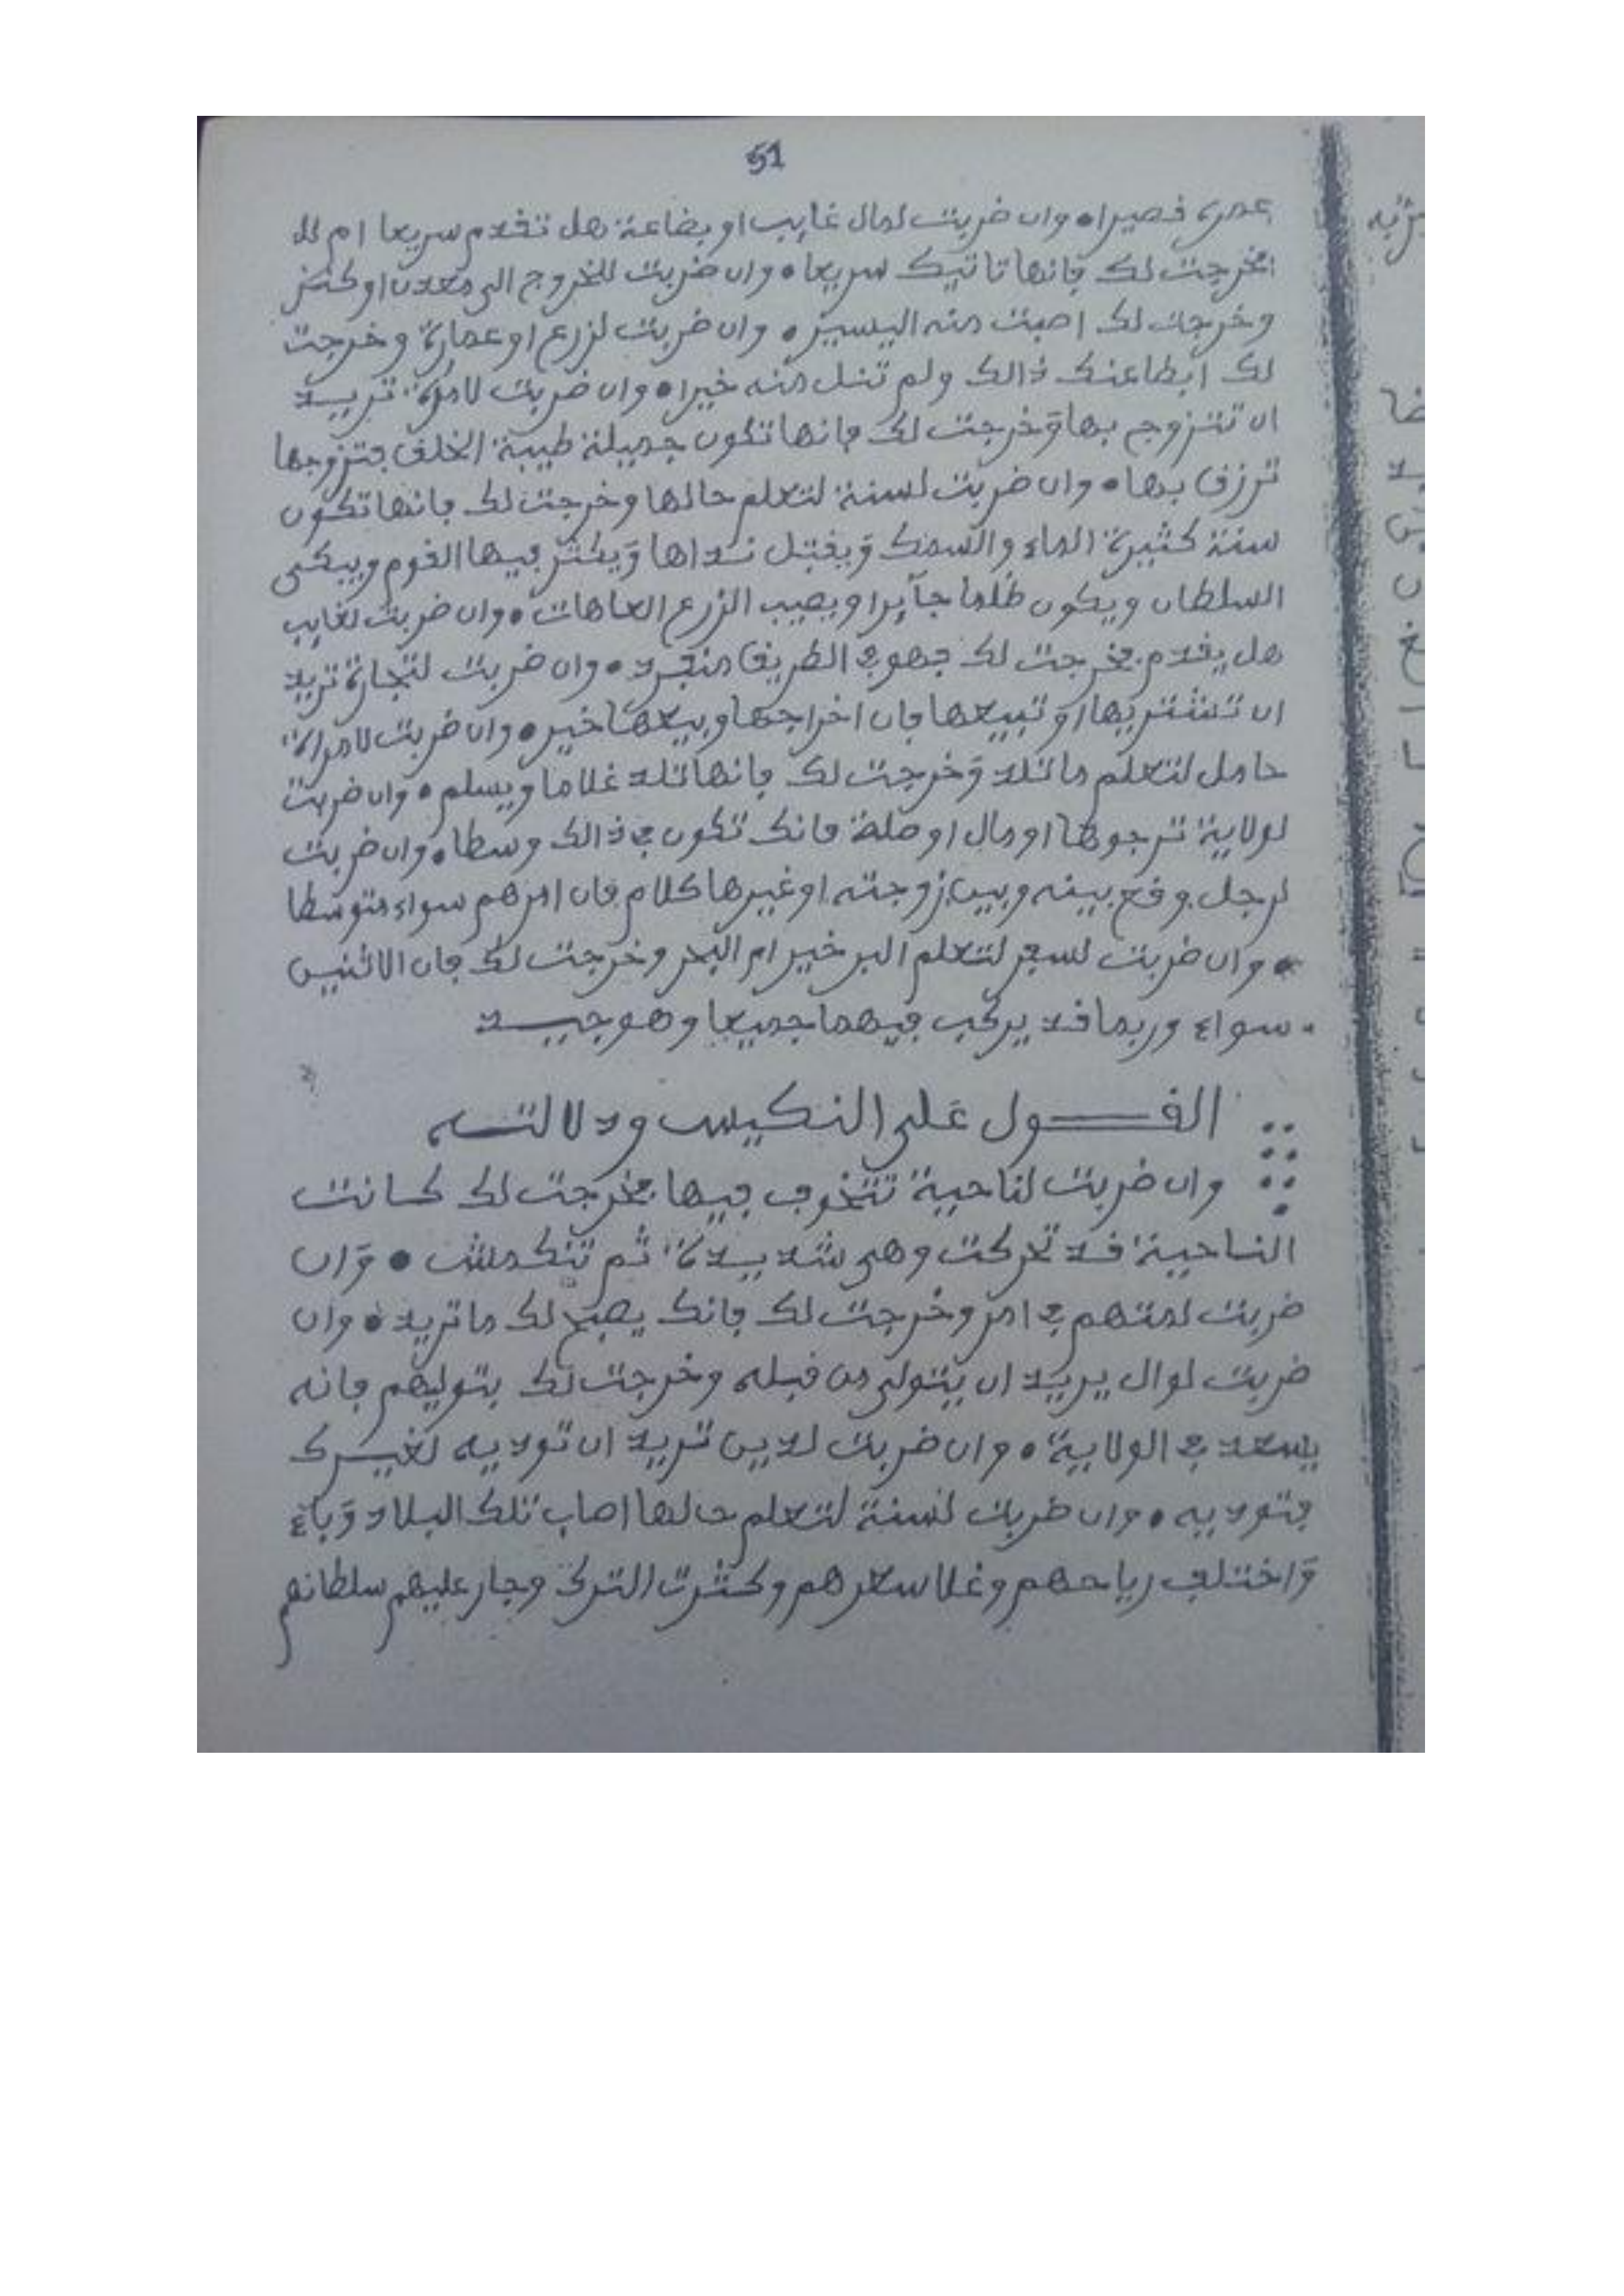 51
عمره قصيرا • وان ضربت لمال غايب او بضاعة هل تقدم سريعا ام لا
فخرجت لك فانها تاتيك سريعا • وان ضربت للخروج الى معدن او كنز
وخرجت لك اصبت منه اليسير • وان ضربت لزرع او عمارة وخرجت
لك ابطا عنك ذالك ولم تنل منه خيرا • وان ضربت لامرأة تريد
ان تتزوج بها وخرجت لك فانها تكون جميلة طيبة الخلق فتزوجها
ترزق بها • وان ضربت لسنة لتعلم حالها وخرجت لك فانها تكون
سنة كثيرة الماء والسمك ويقتل نداها ويكثر فيها القوم ويبكى
السلطان ويكون ظلما جآيرا ويصيب الزرع العاهات • وان ضربت لغايب
هل يقدم فخرجت لك فهو في الطريق منفرد • وان ضربت لتجارة تريد
ان تشتريها او تبيعها فان اخراجها وبيعها خير • وان ضربت لامراة
حامل لتعلم ما تلد وخرجت لك فانها تلد غلاما ويسلم • وان ضربت
لولاية ترجوها او مال او صلة فانك تكون في ذالك وسطا • وان ضربت
لرجل وقع بينه وبين زوجته او غيرها كلام فان امرهم سواء متوسطا
• وان ضربت لسفر لتعلم البر خير ام البحر وخرجت لك فان الاثنين
سواء وربما قد يركب فيهما جميعا وهو جيد
القول على النكيس ودلالته
وان ضربت لناحية تتخوف فيها فخرجت لك كانت
الناحية قد تحركت وهي شديدة ثم تنكمش • وان
ضربت لمتهم في امر وخرجت لك فانك يصح لك ما تريد • وان
ضربت لوال يريد ان يتولى من قبله وخرجت لك بتوليهم فانه
يسعد في الولاية • وان ضربت لدين تريد ان توديه لغيرك
فتوديه • وان ضربت لسنة لتعلم حالها اصاب تلك البلاد وباء
واختلف رياحهم وغلا سعرهم وكثرت الترك وجار عليهم سلطانهم